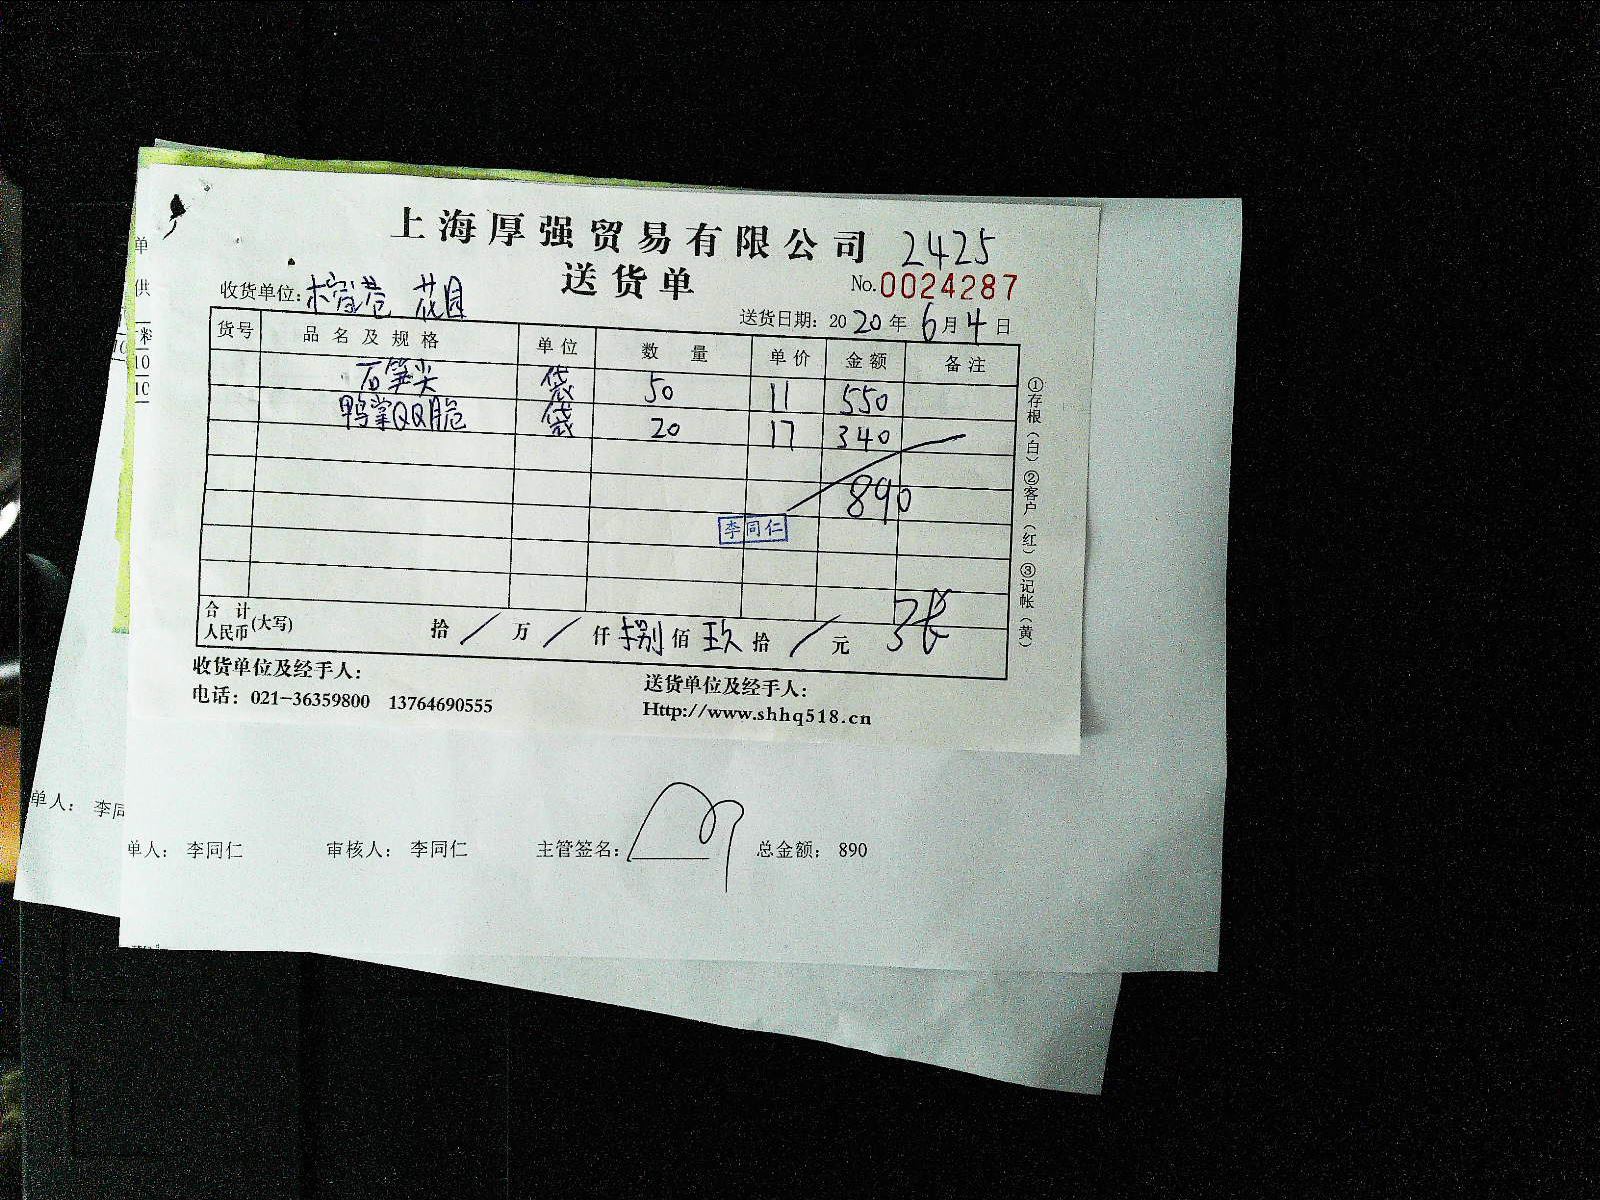 上海厚强贸易有限公司 2425
送货单 No.0024287
收货单位: 榕港 花园
送货日期: 2020年6月4日
货号 品名及规格 单位 数量 单价 金额 备注
石笋尖 袋 50 11 550
鸭掌QQ脆 袋 20 17 340
890
李同仁
合计人民币(大写) 拾 / 万 / 仟 捌 佰 玖 拾 / 元 3张
①存根(白)②客户(红)③记帐(黄)
收货单位及经手人: 送货单位及经手人:
电话: 021-36359800 13764690555 Http://www.shhq518.cn
单
供
料
10
10
10
单人: 李同
单人: 李同仁 审核人: 李同仁 主管签名: 总金额: 890